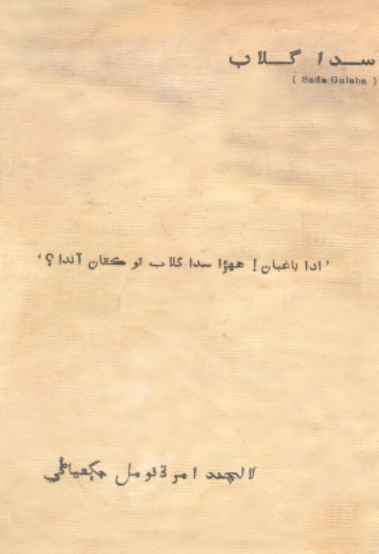 سدا گلاب
( Sada Gulaba )
'ادا باغبان! ھھڙا سدا گلاب تو ڪٿان آندا؟'
لالچند امرڏنومل جڳتياڻي